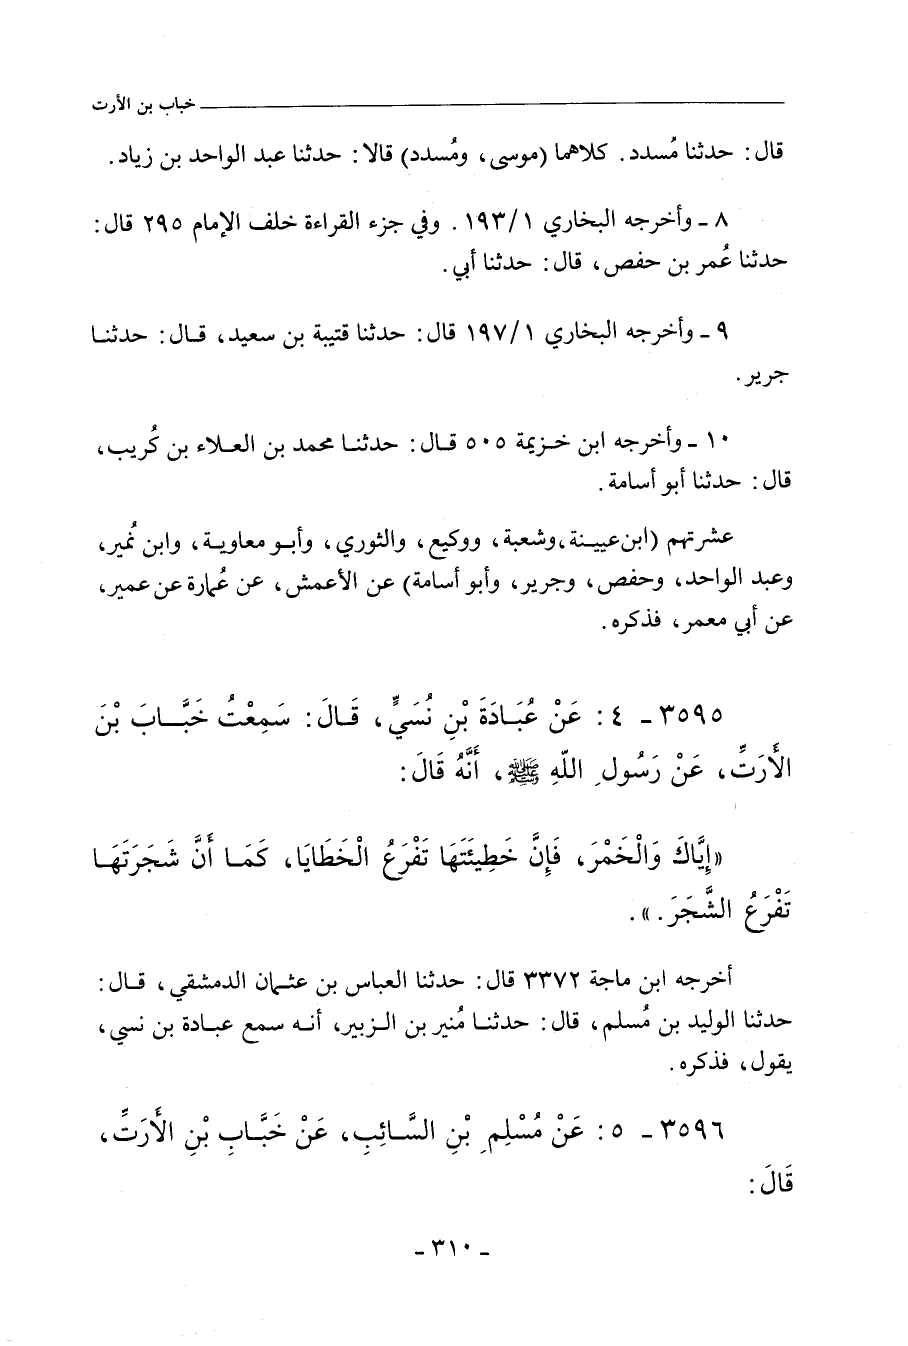 خباب بن الأرت
قال: حدثنا مُسدد. كلاهما (موسى، ومُسدد) قالا: حدثنا عبد الواحد بن زياد.
٨ ـ وأخرجه البخاري ١٩٣/١. وفي جزء القراءة خلف الإمام ٢٩٥ قال:
حدثنا عُمر بن حفص، قال: حدثنا أبي.
٩ ـ وأخرجه البخاري ١٩٧/١ قال: حدثنا قتيبة بن سعيد، قـال: حدثنـا
جرير.
١٠ ـ وأخرجه ابن خـزيمة ٥٠٥ قـال: حدثنـا محمد بن العـلاء بن كُريب،
قال: حدثنا أبو أسامة.
عشرتهم (ابن عيينة، وشعبة، ووكيع، والثوري، وأبـو معاويـة، وابن نُمير،
وعبد الواحد، وحفص، وجرير، وأبو أسامة) عن الأعمش، عن عُمارة عن عمير،
عن أبي معمر، فذكره.
٣٥٩٥ ـ ٤: عَنْ عُبَـادَةَ بْنِ نُسَيٍّ، قَـالَ: سَمِعْتُ خَبَّـابَ بْنَ
الأَرَتِّ، عَنْ رَسُولِ اللَّهِ ﷺ، أَنَّهُ قَالَ:
«إِيَّاكَ وَالْخَمْرَ، فَإِنَّ خَطِيئَتَهَا تَفْرَعُ الْخَطَايَا، كَمَـا أَنَّ شَجَرَتَهَـا
تَفْرَعُ الشَّجَرَ.».
أخرجه ابن ماجة ٣٣٧٢ قال: حدثنا العباس بن عثـمان الدمشقي، قـال:
حدثنا الوليد بن مُسلم، قال: حدثنـا مُنير بن الـزبير، أنـه سمع عبـادة بن نسي،
يقول، فذكره.
٣٥٩٦ ـ ٥: عَنْ مُسْلِمِ بْنِ السَّـائِبِ، عَنْ خَبَّـابِ بْنِ الأَرَتِّ،
قَالَ:
ـ ٣١٠ ـ